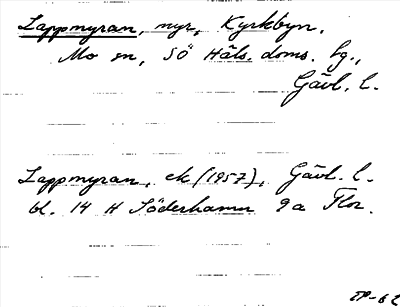 Lappmyran, myr, Kyrkbyn,
Mo sn, SÖ Häls. doms. hg.,
Gävl. l.
Lappmyran, ek (1957), Gävl. l.
bl. 14 H Söderhamn 9a Flor.